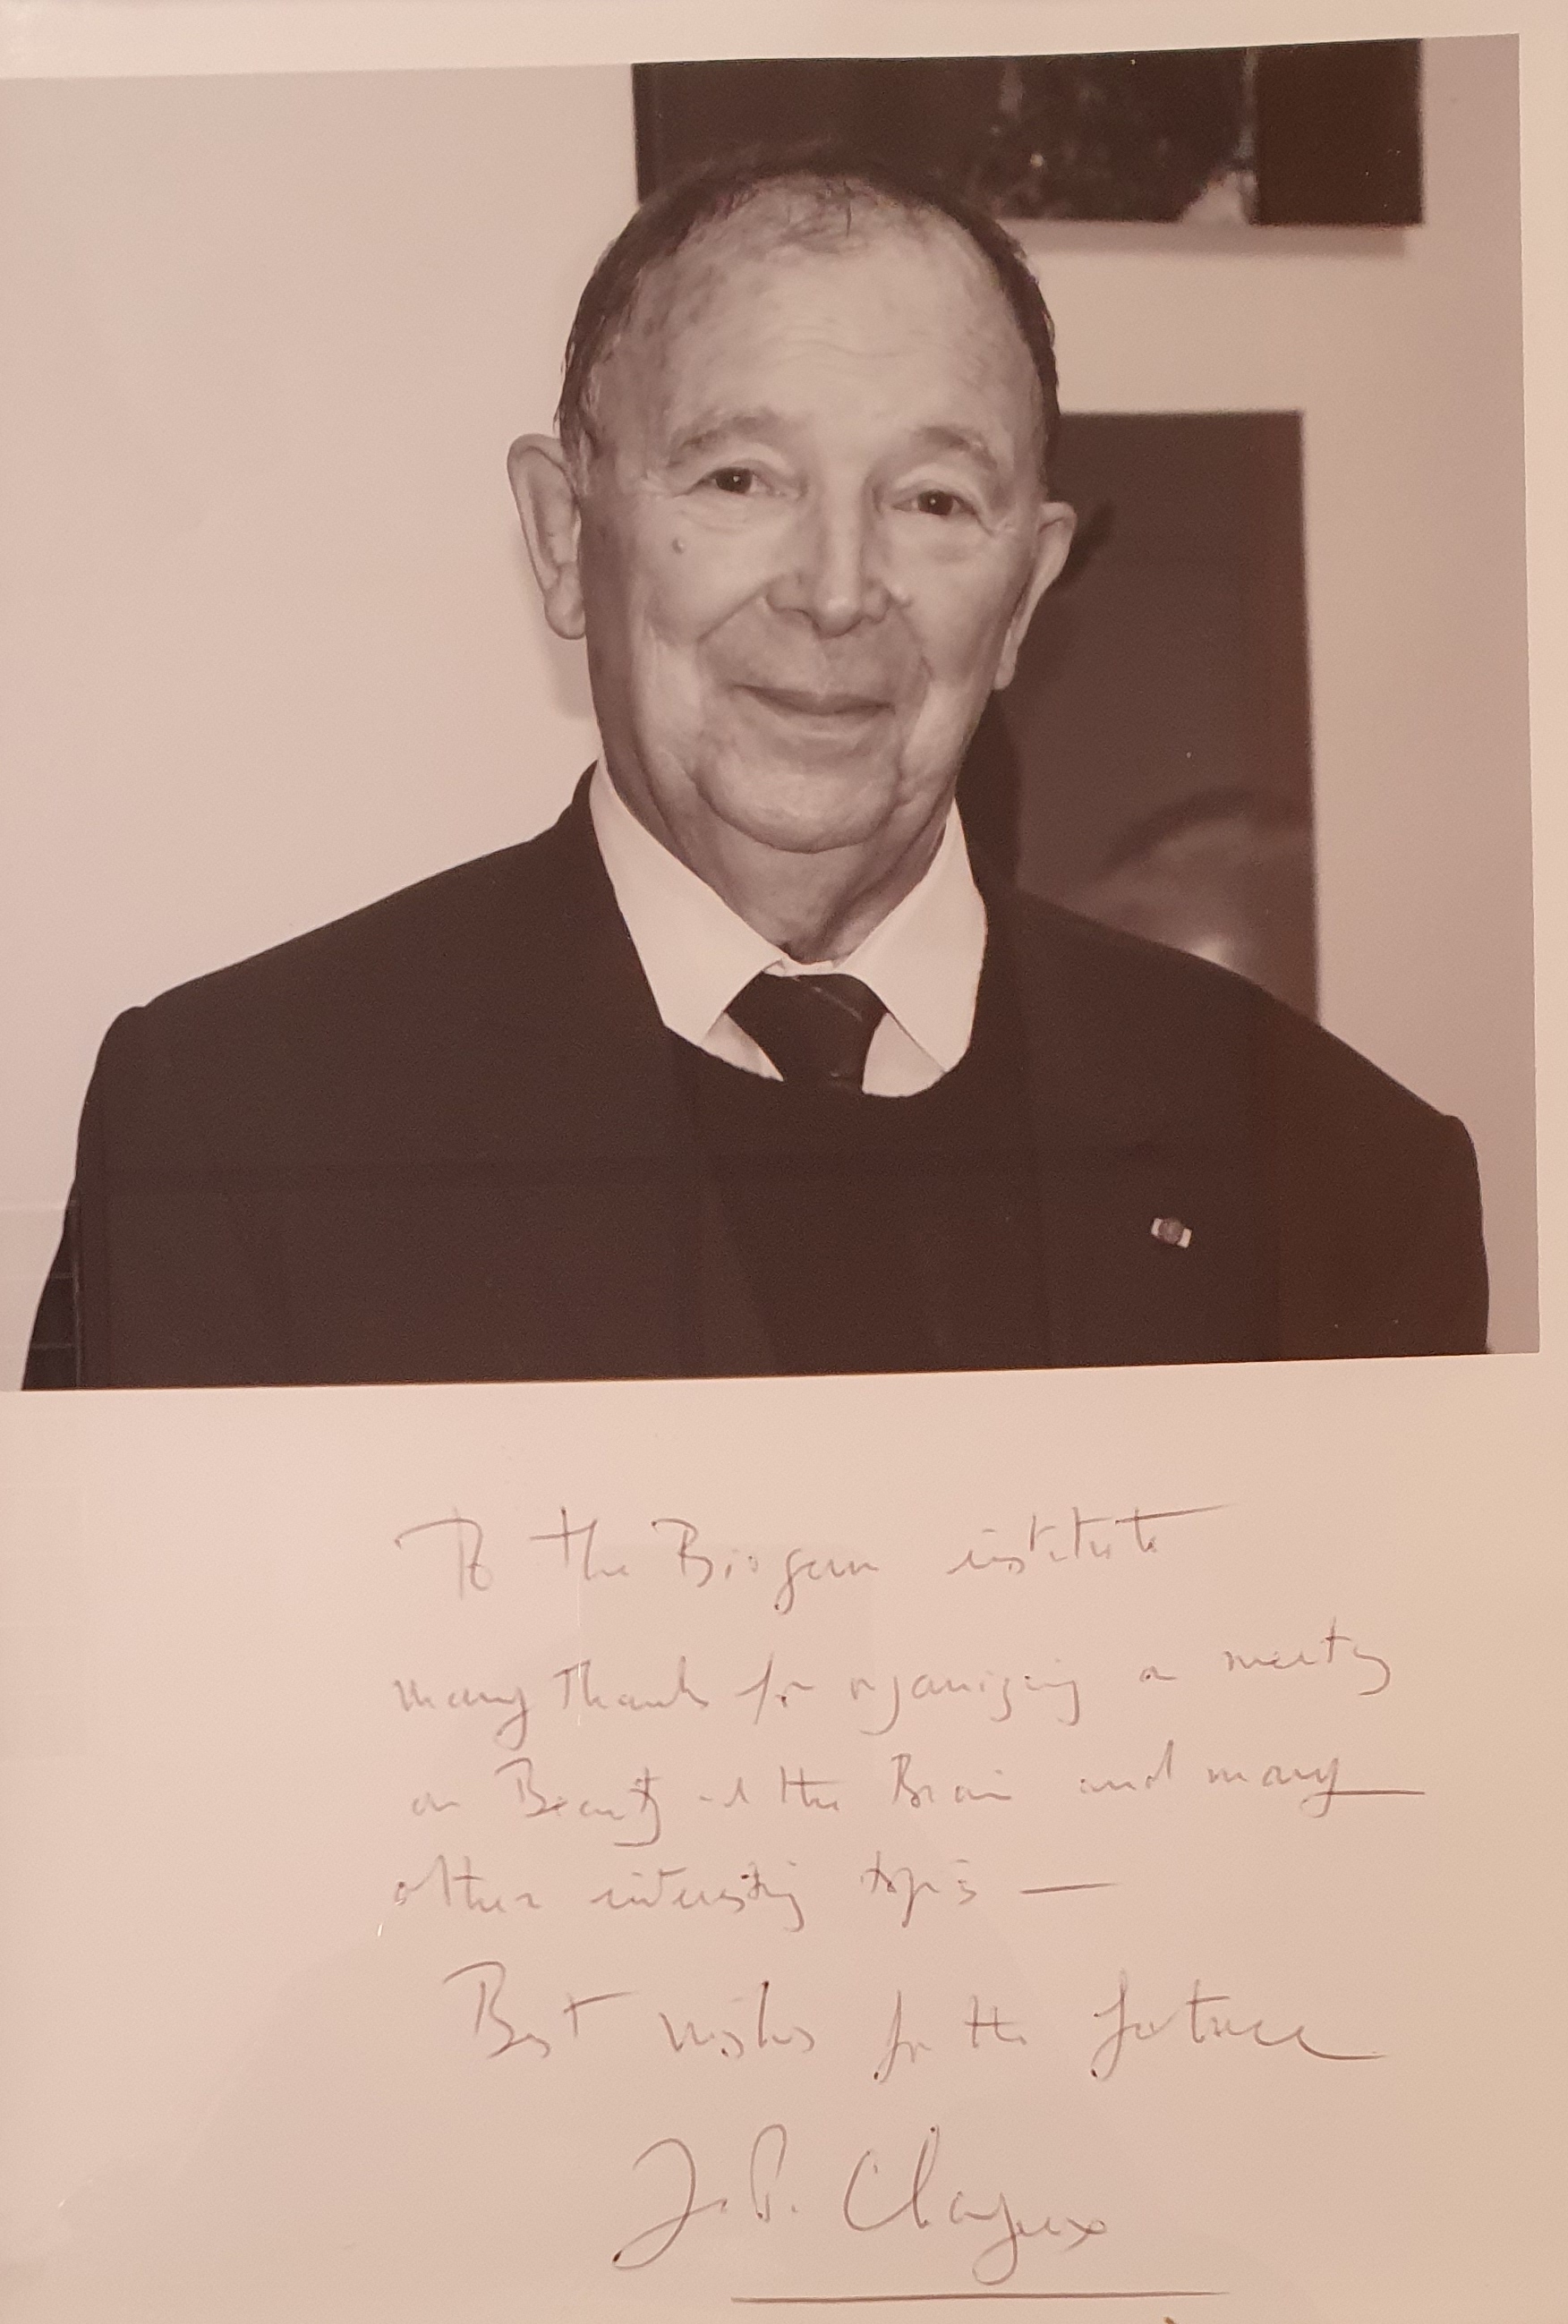 To the Biogem institute
many thanks for organizing a meeting
on Beauty and the Brain and many
other interesting topics —
Best wishes for the future
J.P. Changeux